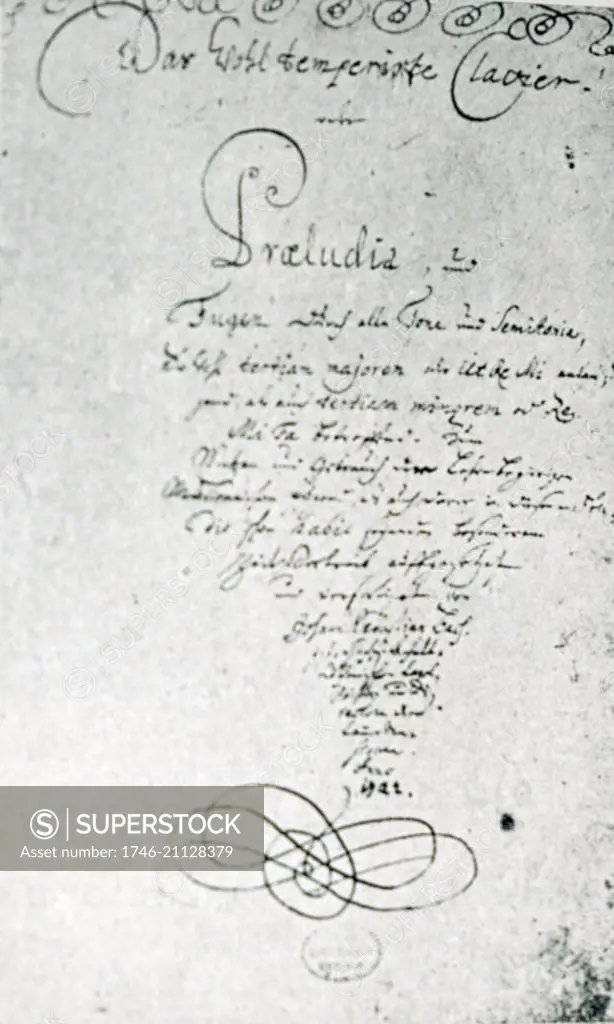 Das Wohl temperirte Clavier.
oder
Præludia, und
Fugen durch alle Tone und Semitonia,
So wohl tertiam majorem oder Ut Re Mi anlan-
gend, als auch tertiam minorem oder Re
Mi Fa betreffend. Zum
Nutzen und Gebrauch der Lehrbegierigen
Musicalischen Jugend, als auch derer in diesem stu-
dio schon habil seyenden besonderem
Zeitvertreib auffgesetzet
und verfertiget von
Johann Sebastian Bach.
Anno
1722.
SUPERSTOCK
Asset number: 1746-21128379